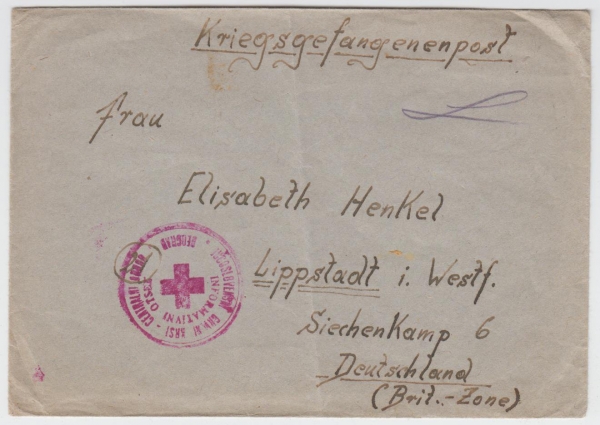 Kriegsgefangenenpost
Frau
Elisabeth Henkel
Lippstadt i. Westf.
Siechenkamp 6
Deutschland
(Brit.-Zone)
BEOGRAD
INFORMATIVNI